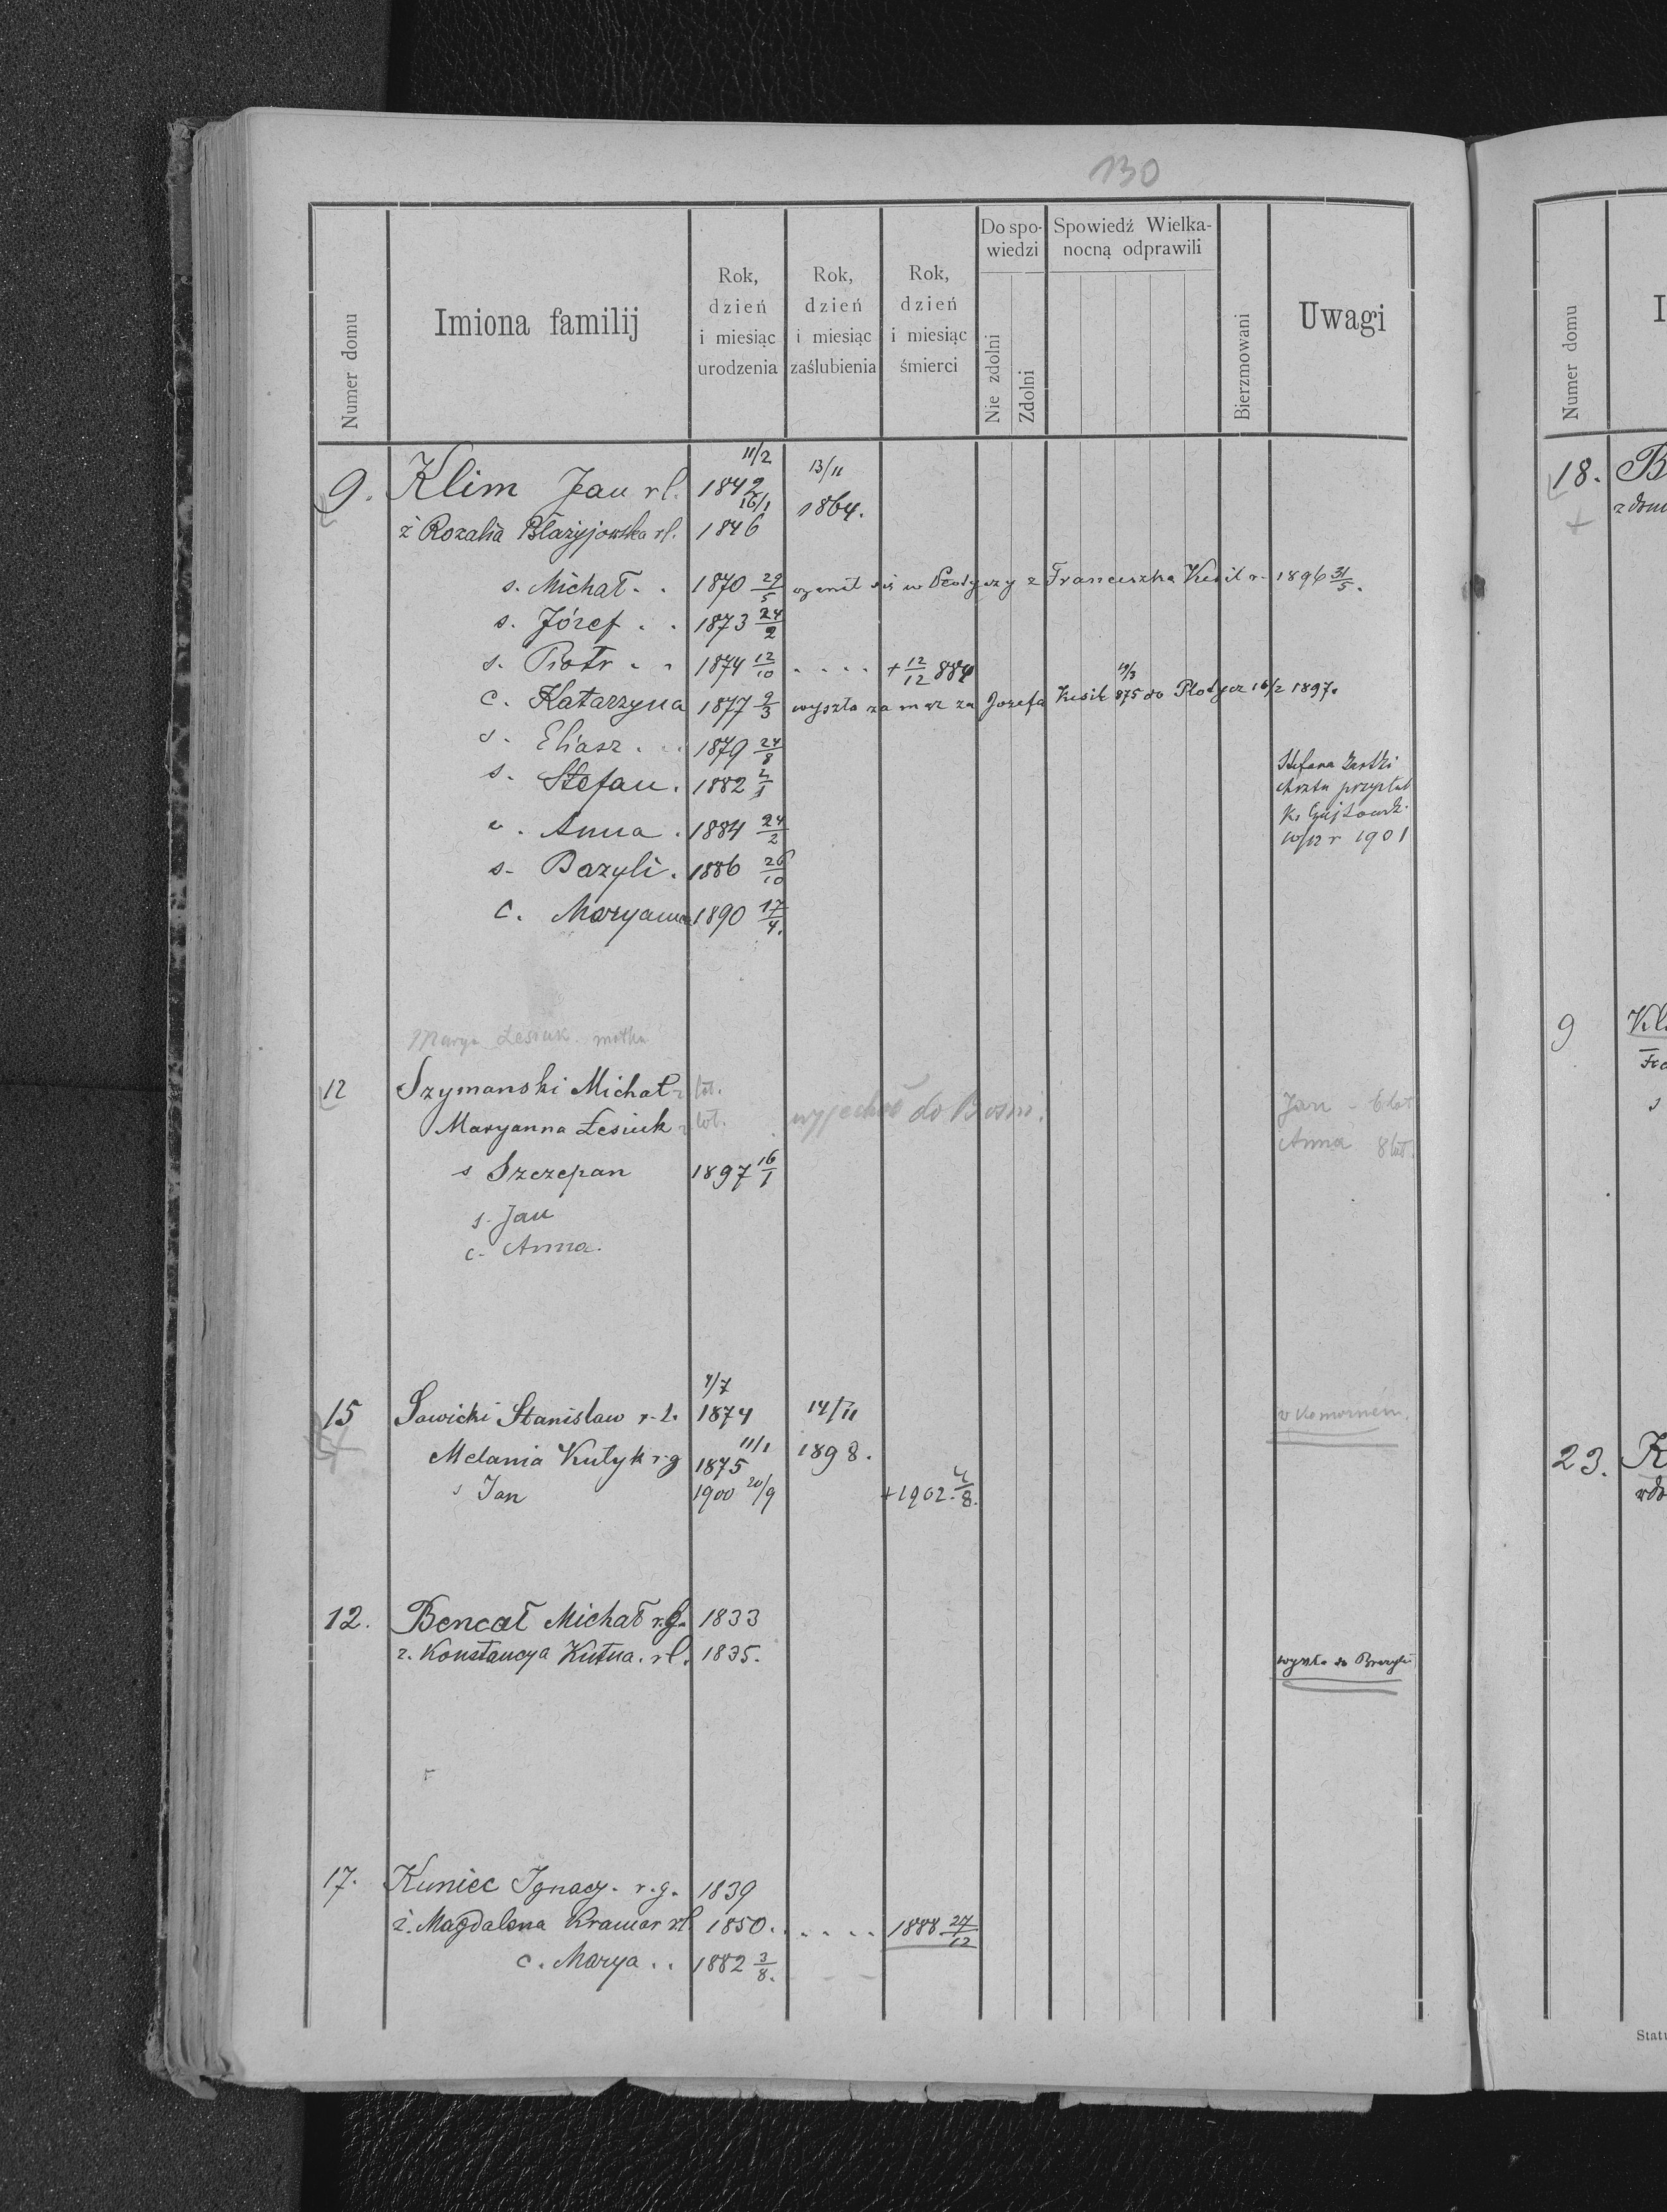 130
Numer domu
Imiona familij
Rok, dzień i miesiąc urodzenia
Rok, dzień i miesiąc zaślubienia
Rok, dzień i miesiąc śmierci
Do spowiedzi
Nie zdolni
Zdolni
Spowiedź Wielkanocną odprawili
Bierzmowani
Uwagi
9. Klim Jan rl. 11/2 1842 13/11 1864.
ż Rozalia Błażyjowska rl. 16/1 1846
s. Michał . . 1870 29/5 ożenił się w Płotyczy z Franciszką Kusil r. 1896 31/5.
s. Józef . . 1873 24/2
s. Piotr . . 1874 12/10 . . . . + 12/12 884
c. Katarzyna 1877 9/3 wyszła za mąż za Józefa Kusil 19/3 875 do Płotycz 16/2 1897.
s. Eliasz . . . 1879 24/8
s. Stefan . 1882 2/1
c. Anna . 1884 24/2
s. Bazyli . 1886 26/10
c. Maryanna 1890 17/4.
Stefana
chrztu przysłał
Ks.
r 1901
Marya Łesiuk matka
12 Szymanski Michał lat. wyjechał do Bośni. Jan - 6 lat
Maryanna Łesiuk lat. Anna 8 lat.
s Szczepan 1897 16/1
s. Jan
c. Anna.
15 Sawicki Stanisław r. ł. 4/7 1874 14/11 1898. w Komornem.
Melania Kutyk r g 1875 11/1
s Jan 1900 20/9 +1902. 4/8.
12. Bencał Michał r.g. 1833
ż. Konstancya Kutna . rl. 1835. do Brazylii
17. Kuniec Ignacy . r.g. 1839
ż. Magdalena Kramar rl 1850. . . . . . 1888 27/12
c. Marya . . 1882 3/8.
Numer domu
18.
z dom
9 Kl
23. K
Statu